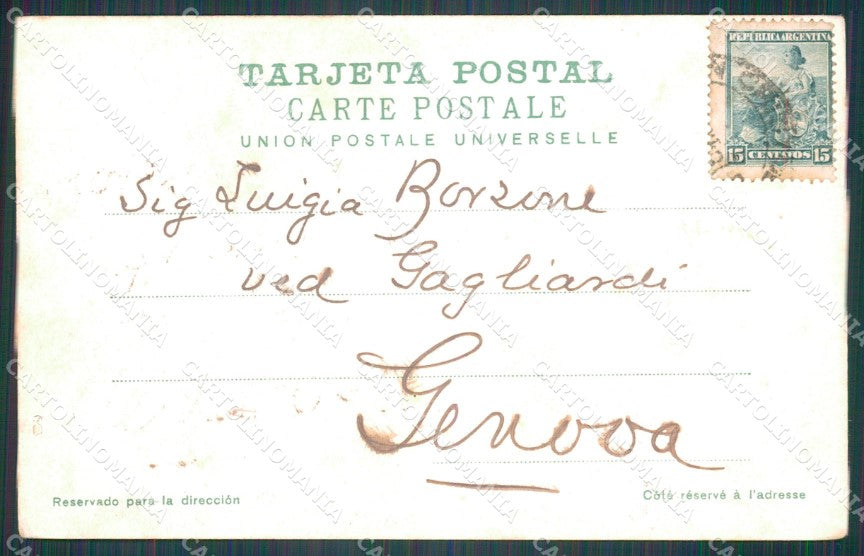 TARJETA POSTAL
CARTE POSTALE
UNION POSTALE UNIVERSELLE
REPUBLICA ARGENTINA
15 CENTAVOS 15
Sig Luigia Borzone
ved Gagliardi
Genova
Reservado para la dirección
Côté réservé à l'adresse
CARTOLINOMANIA